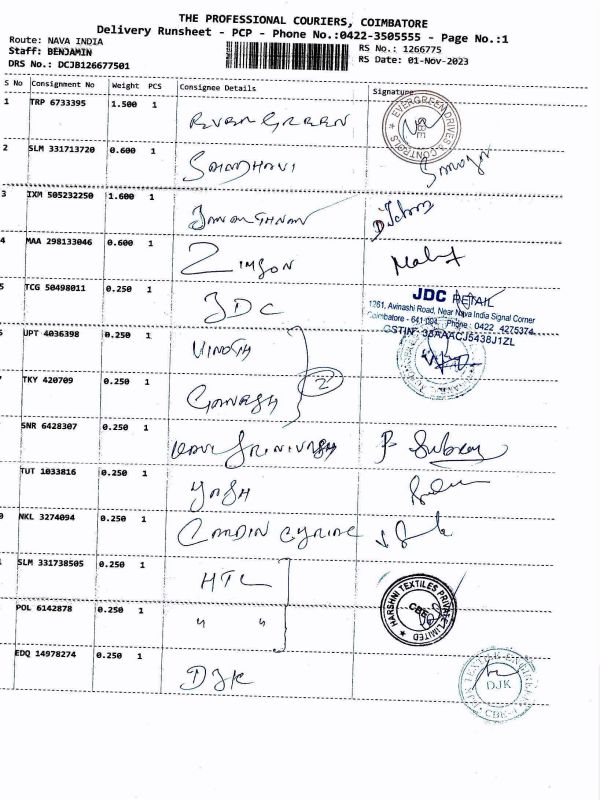 THE PROFESSIONAL COURIERS, COIMBATORE
Delivery Runsheet - PCP - Phone No.:0422-3505555 - Page No.:1
Route: NAVA INDIA
Staff: BENJAMIN
DRS No.: DCJB126677501
RS No.: 1266775
RS Date: 01-Nov-2023
S No Consignment No Weight PCS Consignee Details Signature
1 TRP 6733395 1.500 1 EVERGREEN
EVERGREEN DRIVES & CONTROLS CBE
2 SLM 331713720 0.600 1
3 IXM 505232250 1.600 1
4 MAA 298133046 0.600 1 ZIMSON
5 TCG 50498011 0.250 1 JDC
JDC RETAIL
1261, Avinashi Road, Near Nava India Signal Corner
Coimbatore - 641 004. Phone : 0422 4275374
GSTIN: 33AAACJ5438J1ZL
UPT 4036398 0.250 1 VINOTH
2
TKY 420709 0.250 1 GANESH
SNR 6428307 0.250 1 SRINIVASH
TUT 1033816 0.250 1 YASH
NKL 3274094 0.250 1
SLM 331738505 0.250 1 HTL
HARSHNI TEXTILES PRIVATE LIMITED CBE
POL 6142878 0.250 1 " "
EDQ 14978274 0.250 1 DJK
DJK TEXTILE ENGINEERS DJK CBE